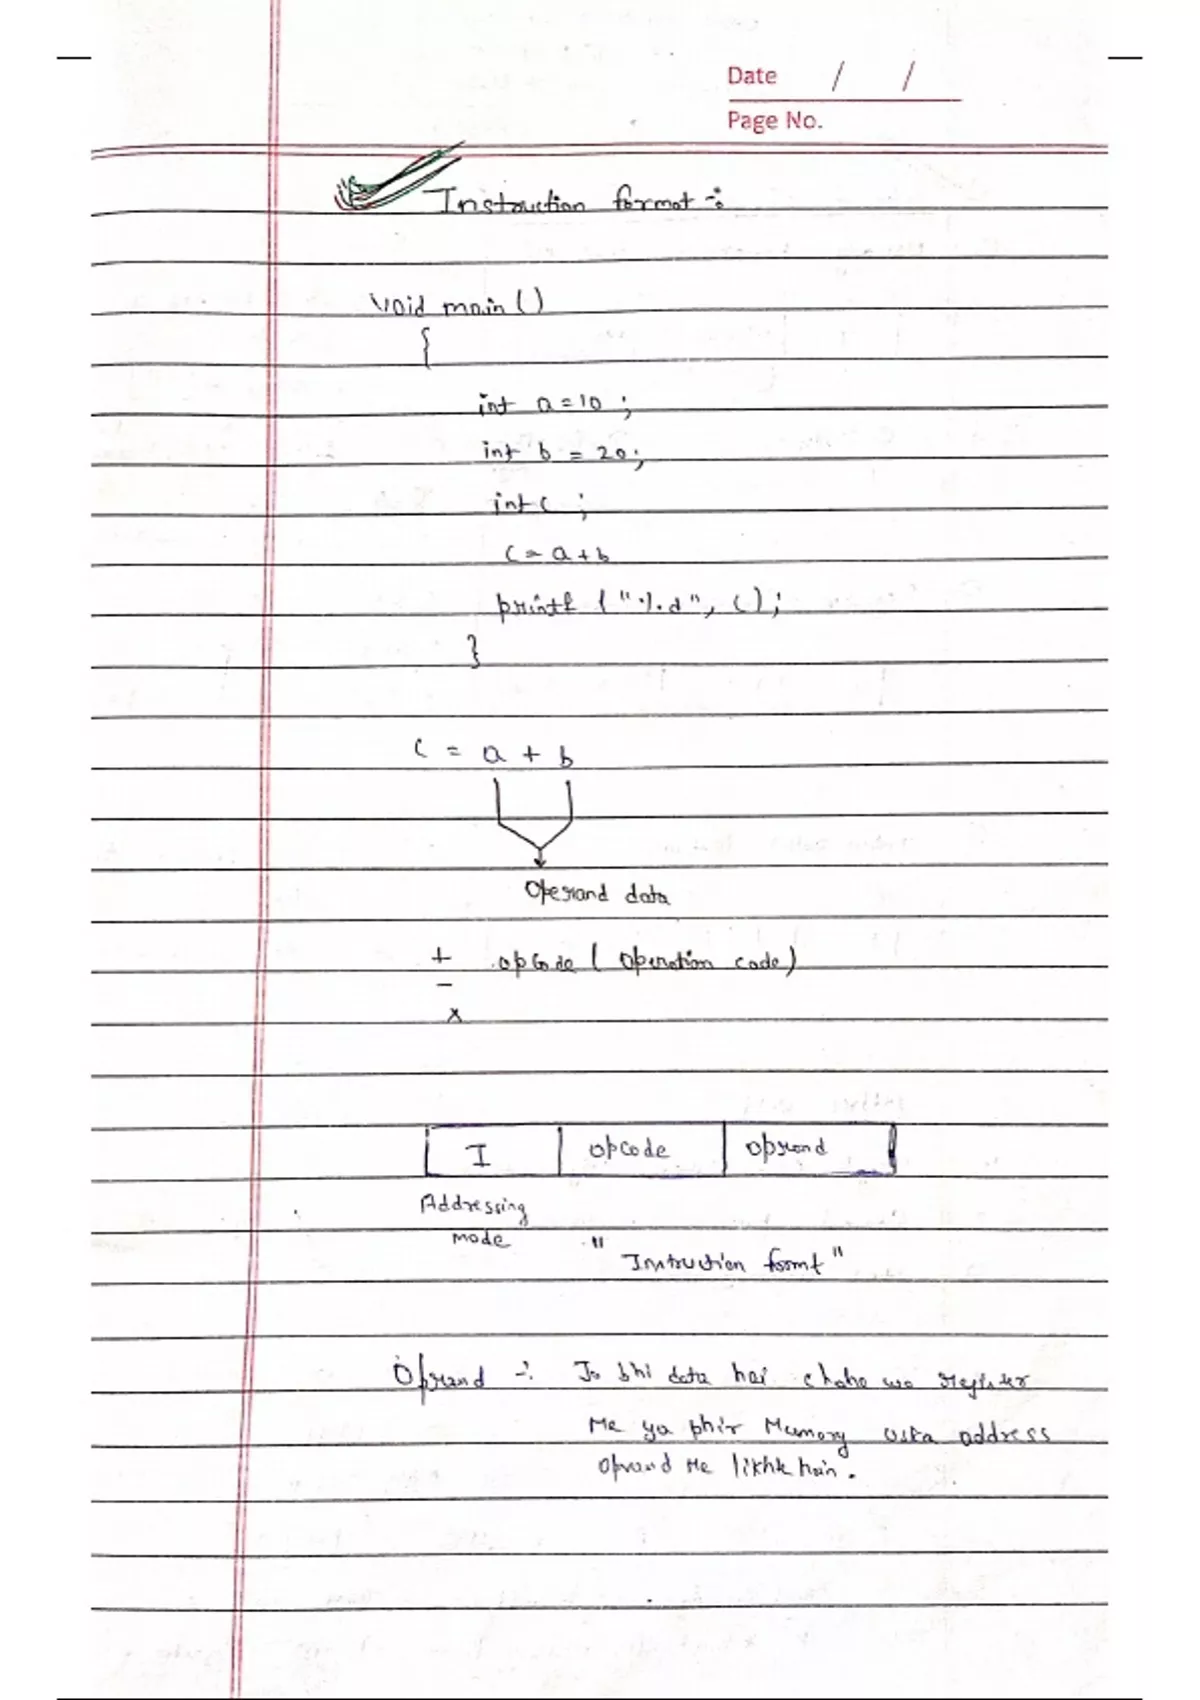 Date / /
Page No.
Instruction format :-
void main ()
{
int a = 10 ;
int b = 20 ;
int c ;
c = a + b
printf ( "%d", c ) ;
}
c = a + b
Operand data
+ opcode ( operation code )
-
x
I opcode oprand
Addressing
mode
" Intruction formt "
Oprand :- Jo bhi data hai chahe wo register
Me ya phir Memory uska address
oprand me likhte hain .